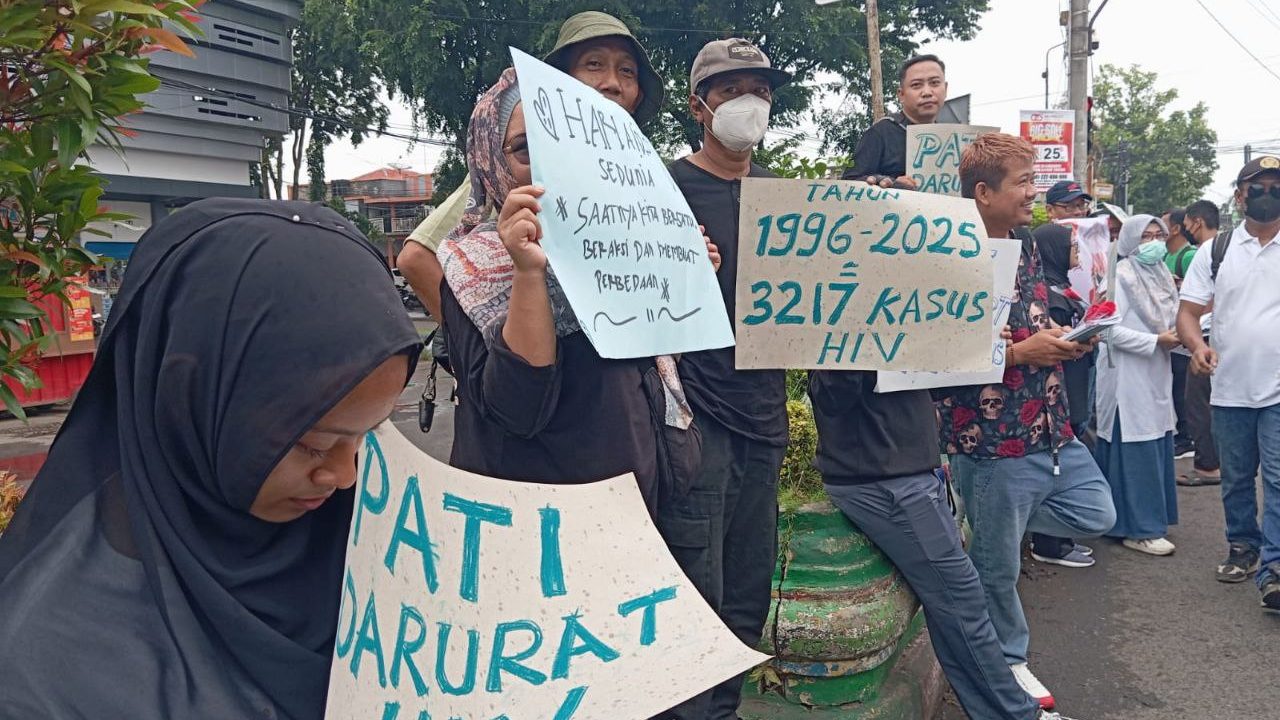 HARI AIDS
SEDUNIA
* SAATNYA KITA BERSATU
BERAKSI DAN MEMBUAT
PERBEDAAN *
TAHUN
1996-2025
=
3217 KASUS
HIV
PATI
DARURAT
PATI
DARURAT
HIV
25